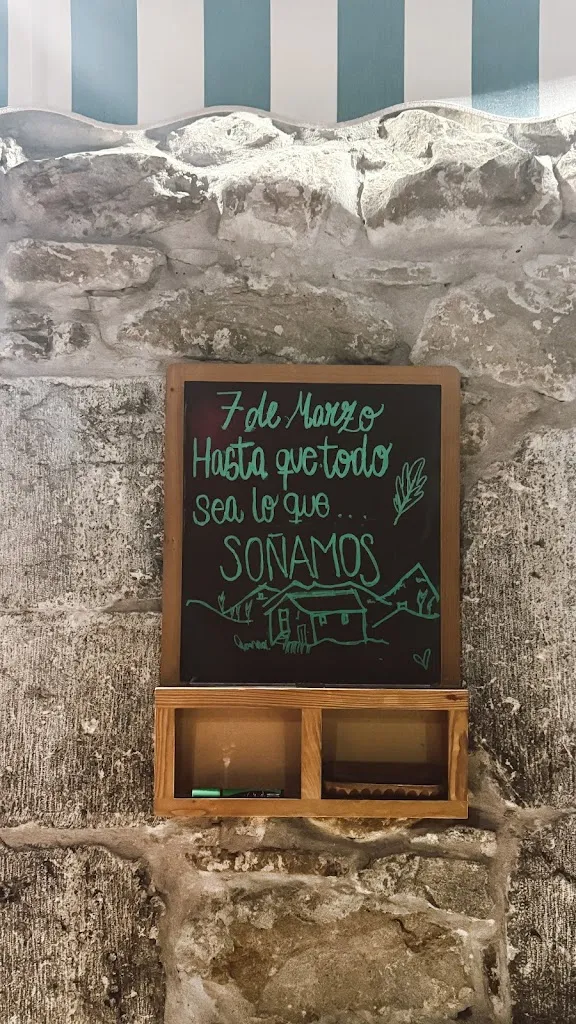 7 de Marzo
Hasta que todo
sea lo que...
SOÑAMOS